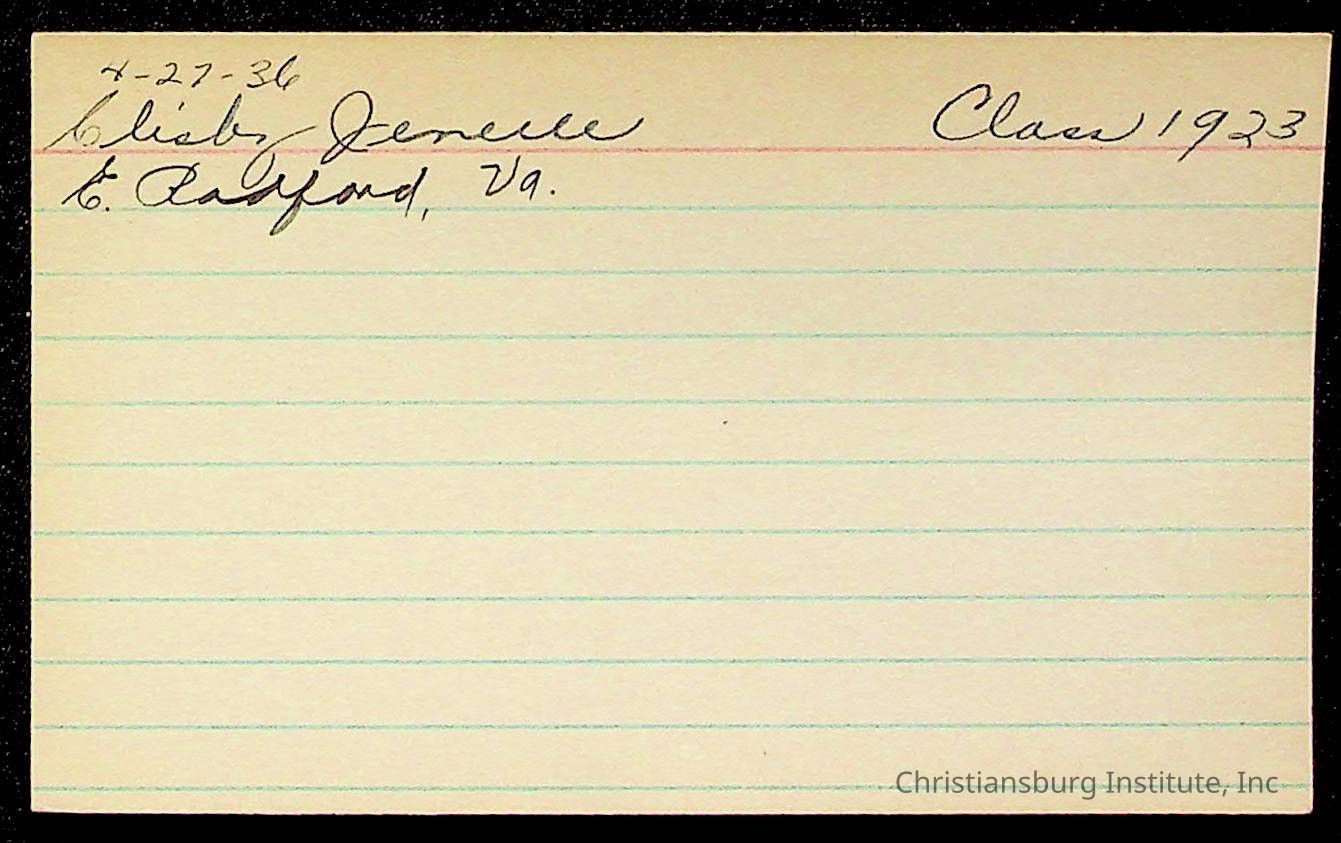 4-27-36
Clisby Jenelle Class 1923
E. Radford, Va.
Christiansburg Institute, Inc